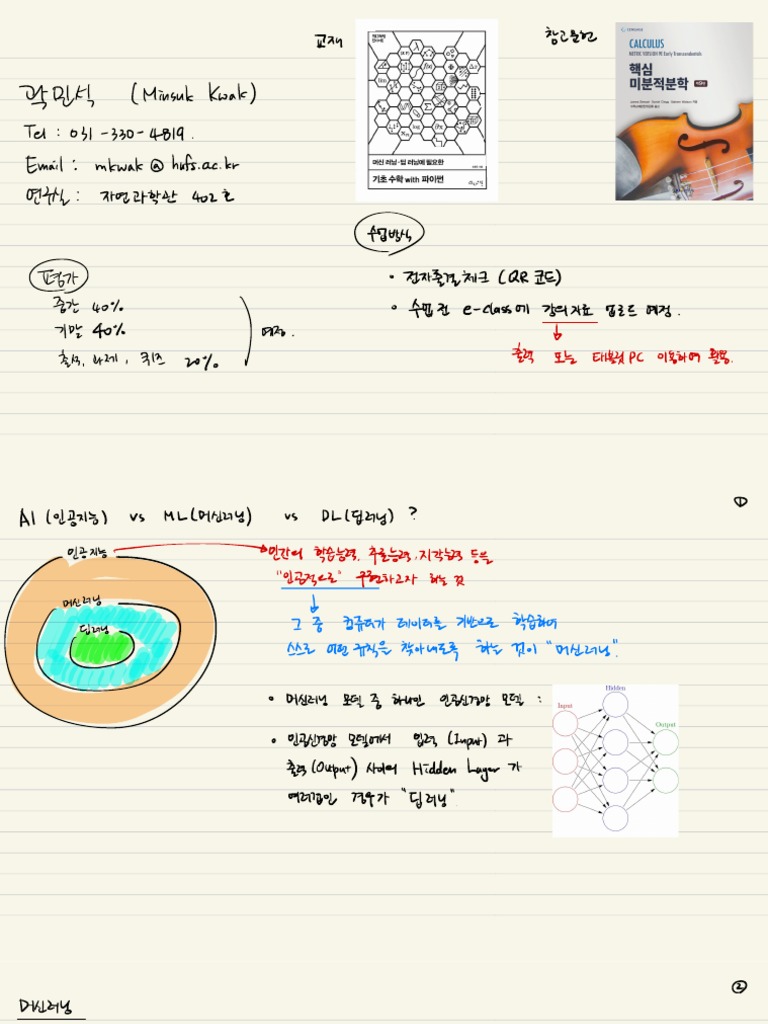 교재
참고문헌
곽민석 (Minsuk Kwak)
Tel : 031-330-4819.
Email : mkwak@hufs.ac.kr
연구실 : 자연과학관 402호
머신 러닝·딥 러닝에 필요한
기초 수학 with 파이썬
CALCULUS
핵심
미분적분학
수업방식
• 전자출결체크 (QR 코드)
• 수업 전 e-class에 강의자료 업로드 예정.
출력 또는 태블릿PC 이용하여 활용.
평가
중간 40%
기말 40%
출석, 과제, 퀴즈 20%
예정.
①
AI (인공지능) vs ML(머신러닝) vs DL(딥러닝) ?
인공지능
머신러닝
딥러닝
인간의 학습능력, 추론능력, 지각능력 등을
"인공적으로" 구현하고자 하는 것
그 중 컴퓨터가 데이터를 기반으로 학습하여
스스로 어떤 규칙을 찾아내도록 "하는 것이 "머신러닝".
• 머신러닝 모델 중 하나인 인공신경망 모델 :
• 인공신경망 모델에서 입력 (Input) 과
출력(Output) 사이의 Hidden Layer 가
여러겹인 경우가 "딥러닝".
Hidden
Input
Output
②
머신러닝